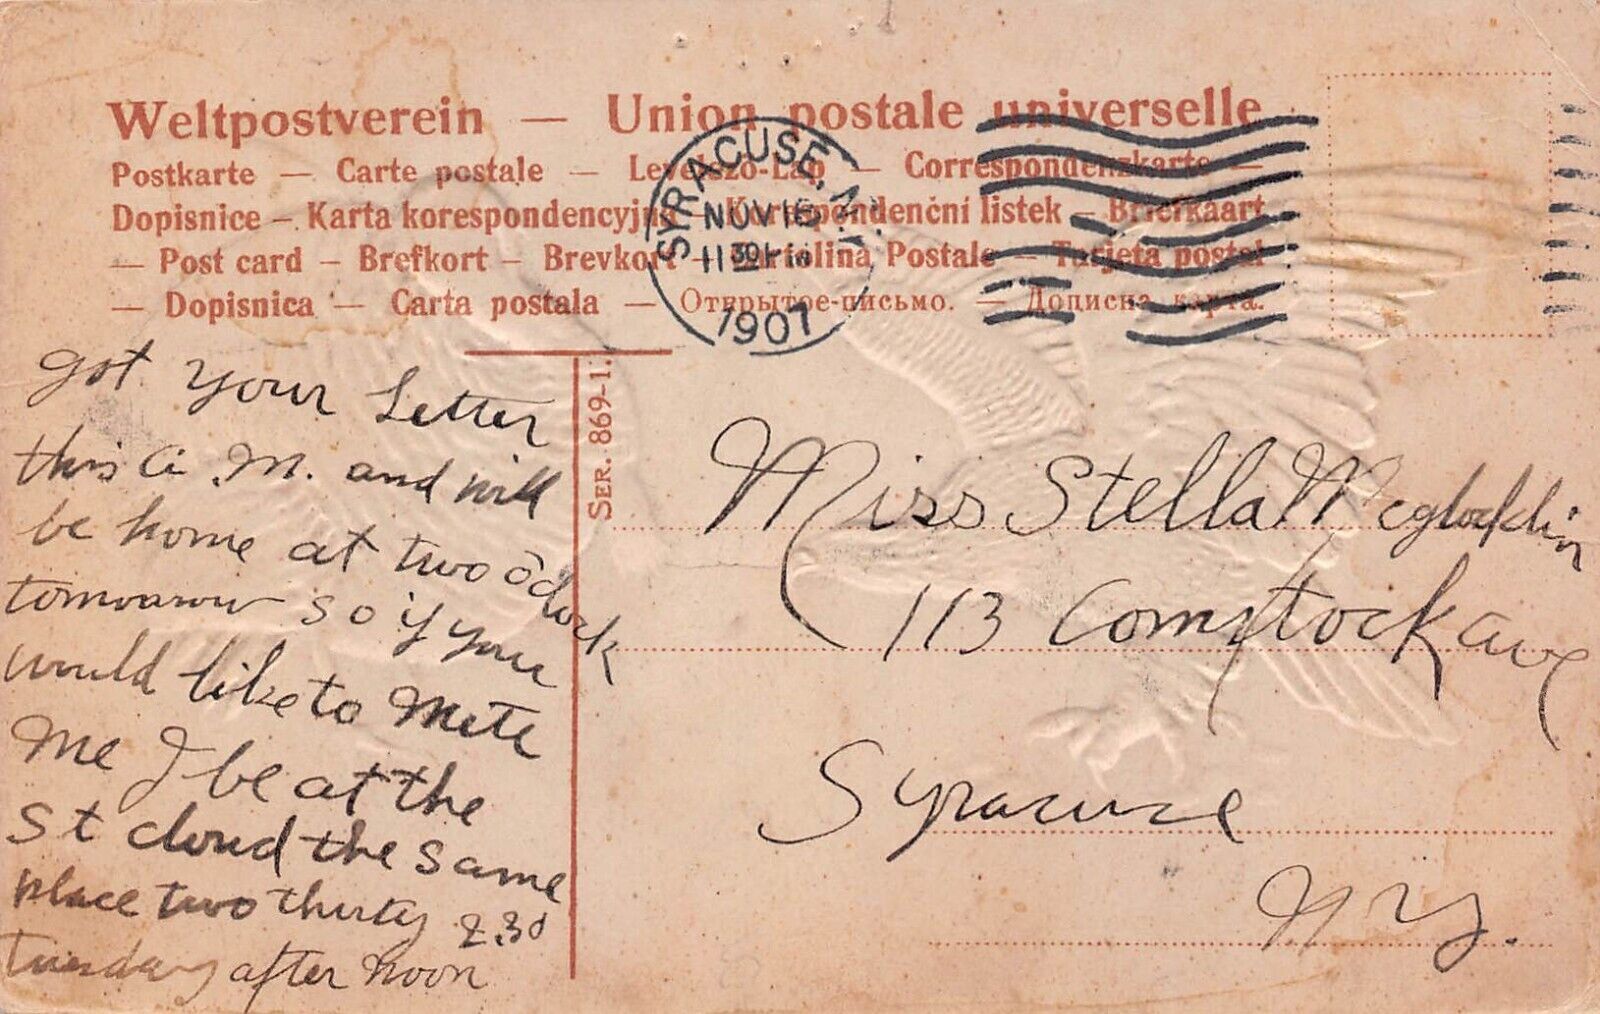 Weltpostverein — Union postale universelle
Postkarte — Carte postale — Levelezö-Lap — Correspondenzkarte —
Dopisnice — Karta korespondencyjna — Korespondenční listek — Briefkaart
— Post card — Brefkort — Brevkort — Cartolina Postale — Tarjeta postal
— Dopisnica — Carta postala — Открытое-письмо. — Дописна карта.
SYRACUSE, N.Y.
NOV 18
11 30 PM
1907
SER. 869-1.
got your Letter
this a. M. and will
be home at two oclock
tomorarow so if you
would like to Mete
Me I be at the
St cloud the same
place two thirty 2.30
Tuesday after noon
Miss Stella Mcglocklin
113 Comstock ave
Syracuse
N Y.